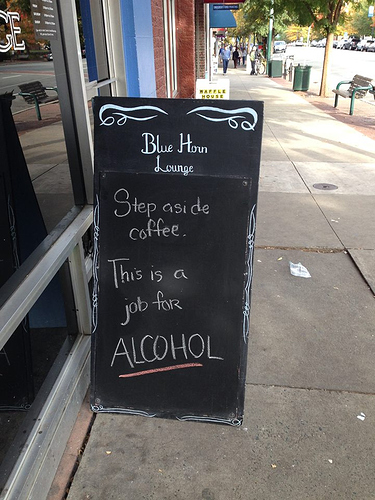 GE
WAFFLE
HOUSE
Blue Horn
Lounge
Step aside
coffee.
This is a
job for
ALCOHOL